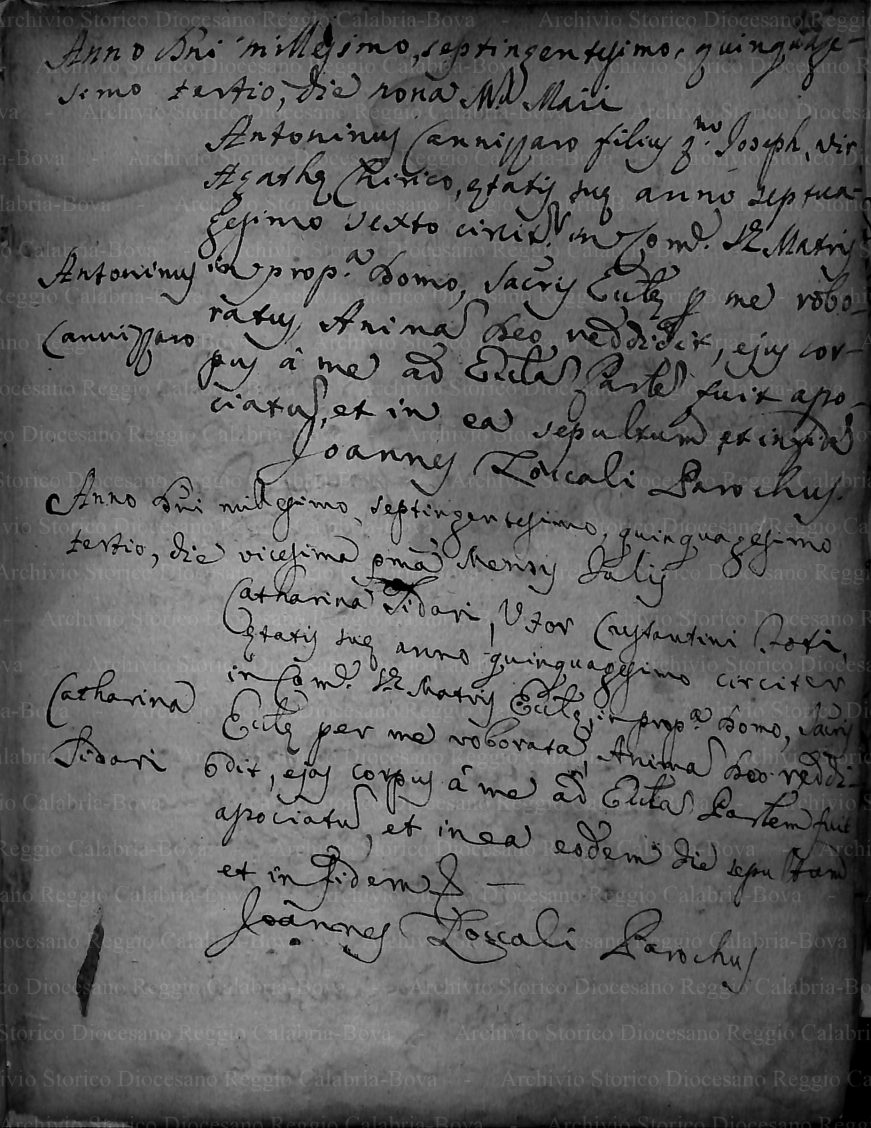 Anno Dni millesimo, septingentesimo, quinquage-
simo tertio, die nona M. Maii
Antoninus Cannizzaro filius q.m Joseph, vir
Agathę Chirico, ętatis suę anno septua-
gesimo sexto circit.r in Com. S. Matris
Antoninus Cannizzaro
in prop.a domo, Sacris Ecclę p me robo-
ratus, Animã Deo reddidit, ejus cor-
pus à me ad Ecclã Parlẽ fuit asso-
ciatũ, et in ea sepultum et in fide
Joannes Toscali Parochus.
Anno Dni millesimo, septingentesimo, quinquagesimo
tertio, die vicesima pma Mensis Julij
Catharina Tidari, Uxor Custantini
ętatis suę anno quinquagesimo circiter
in Com. S. Matris Ecclę, in prop.a domo, Sacris
Catharina Tidari
Ecclę per me roborata, Animã Deo reddi-
dit, ejus corpus à me ad Ecclã Parlem fuit
associatũ, et in ea eodem die sepultum
et in fidem
Joannes Toscali Parochus
Archivio Storico Diocesano Reggio Calabria-Bova